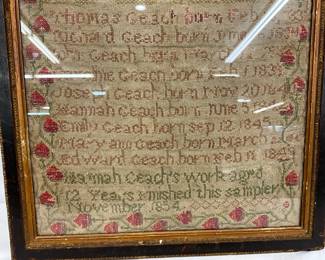 Thomas Geach born Feb
Richard Geach born June
Geach born March
Geach born 1839
Josep Geach born Nov 20 18
Hannah Geach born June 5 18
Emily Geach born Sep 12 1845
Mary ann Geach born March
Edward Geach born Feb 11 1849
Hannah Geach's work aged
12 Years finished this sampler
November 1854